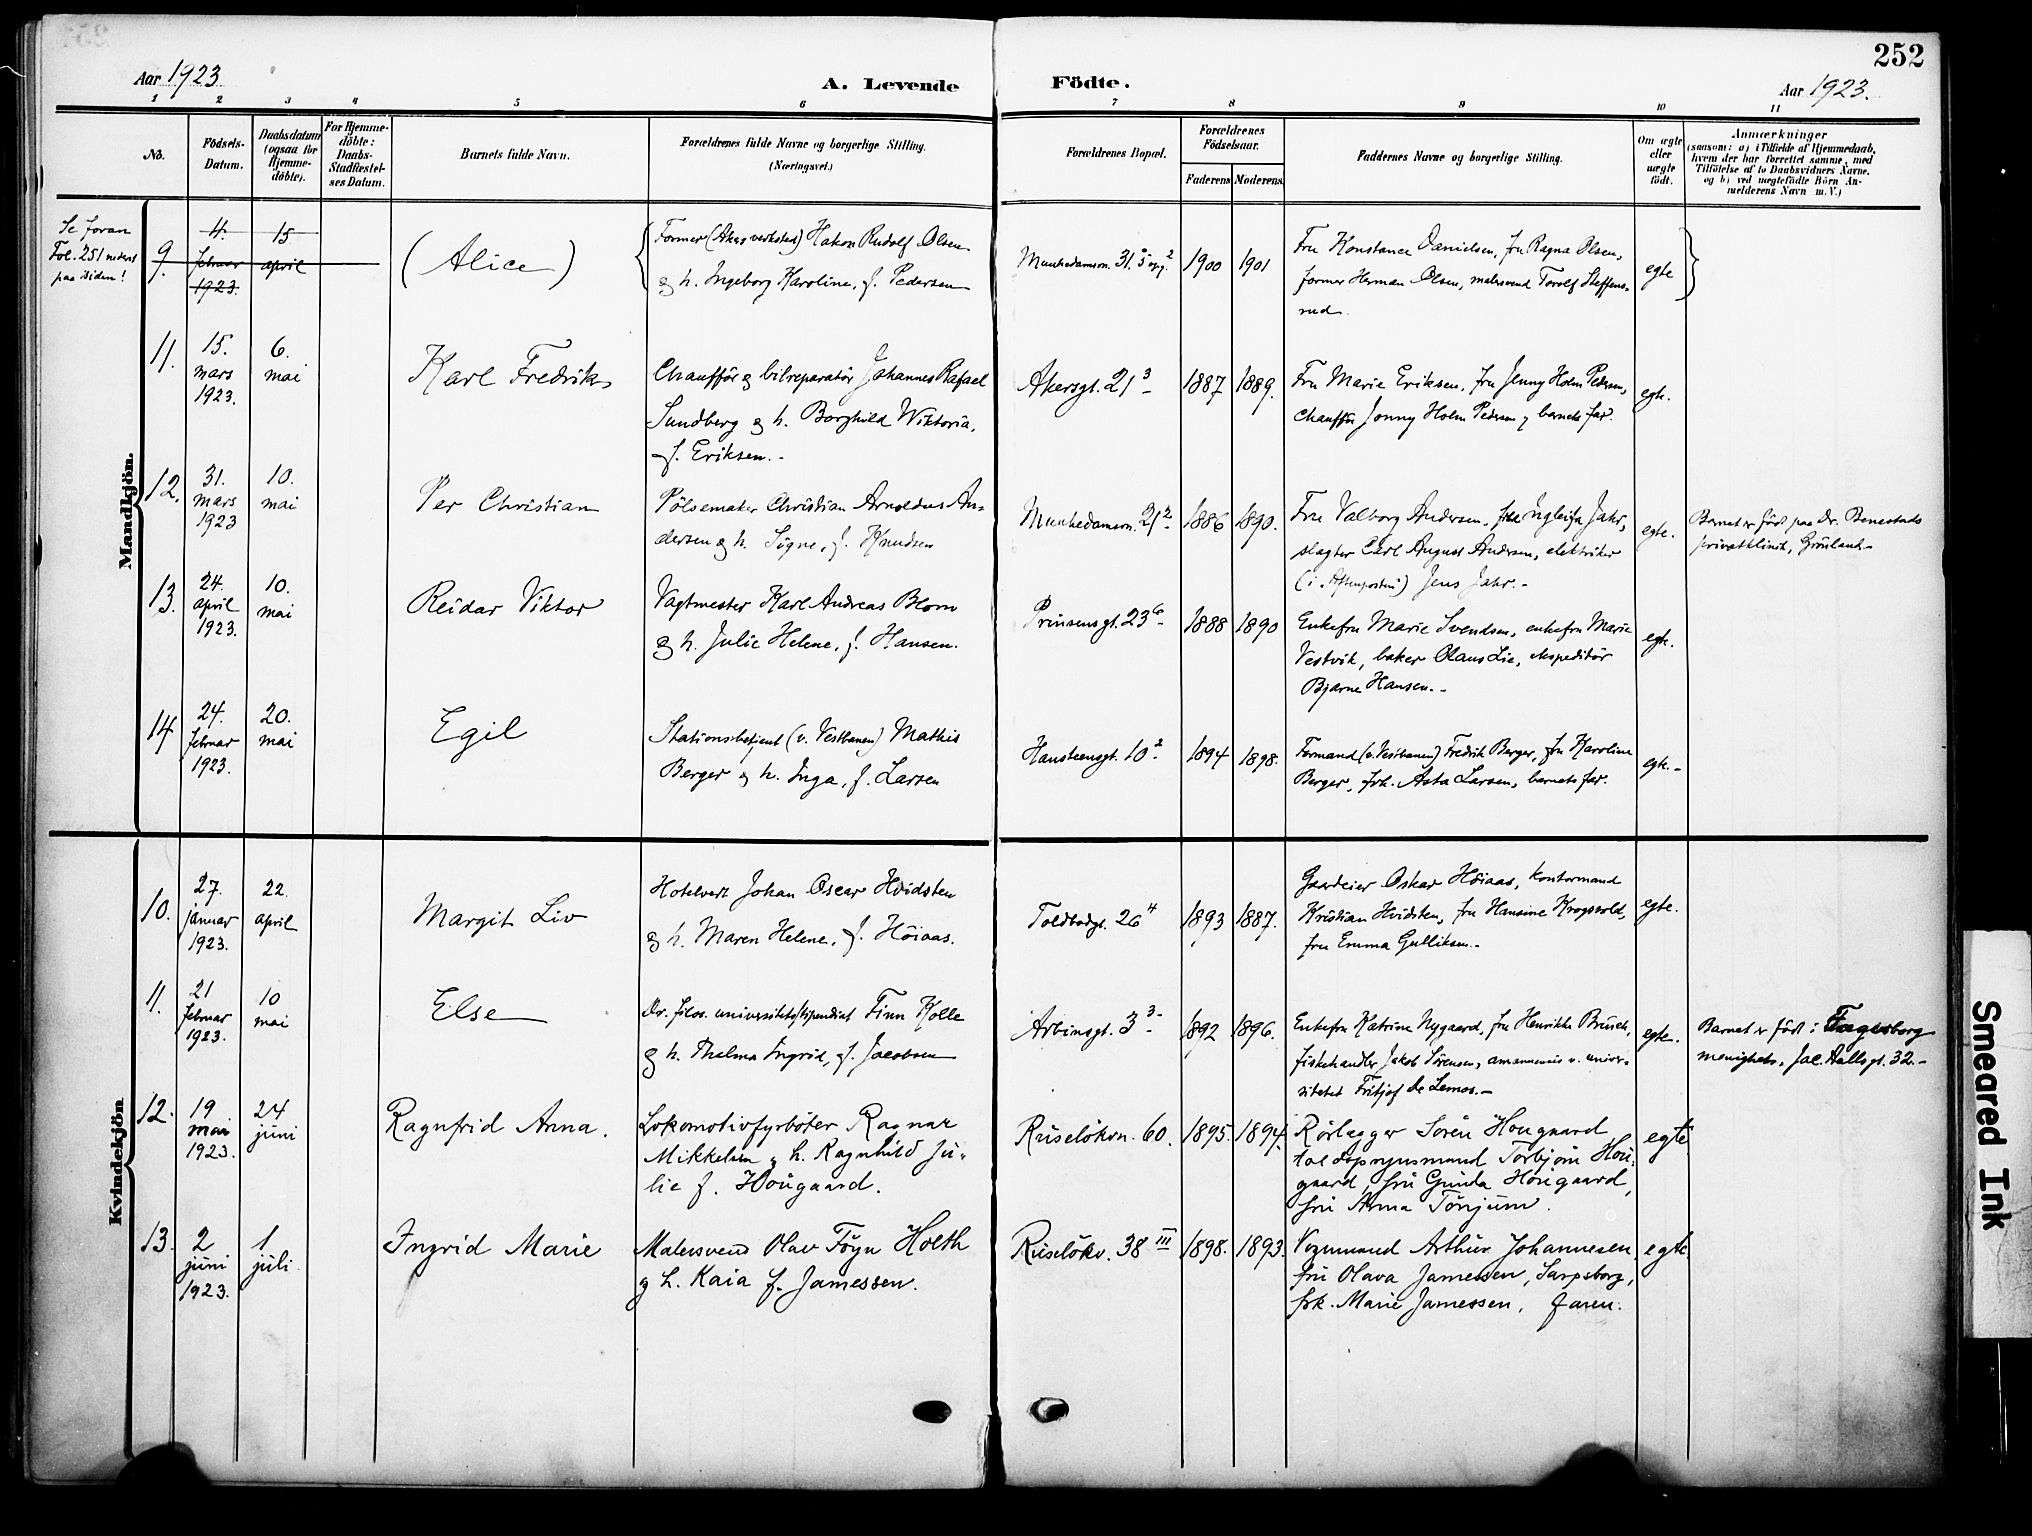 252
Aar 1923.
A. Levende
Födte.
Aar 1923.
1 2 3 4 5 6 7 8 9 10 11
No.
Födsels-
Datum.
Daabsdatum
(ogsaa for
Hjemme-
döbte).
For Hjemme-
döbte:
Daabs-
Stadfæstel-
ses Datum.
Barnets fulde Navn.
Forældrenes fulde Navne og borgerlige Stilling.
(Næringsvei.)
Forældrenes Bopæl.
Forældrenes
Födselsaar.
Faderens
Moderens
Faddernes Navne og borgerlige Stilling.
Om ægte
eller
uægte
født.
Anmærkninger
(saasom: a) i Tilfælde af Hjemmedaab,
hvem der har forrettet samme, med
Tilföielse af to Daabsvidners Navne,
og b) ved uægtefödte Börn An-
melderens Navn m. V.)
Mandkjön.
Se foran
Fol. 251 nederst
paa siden!
9.
4.
februar
1923.
15
april
(Alice)
Former (Akers verksted) Hakon Rudolf Olsen
og h. Ingeborg Karoline, f. Pedersen
Munkedamsvn. 31. 5 opg. 2
1900
1901
Fru Konstance Danielsen, fru Ragna Olsen,
former Herman Olsen, malersvend Torolf Steffens-
rud.
egte
11.
15.
mars
1923.
6.
mai
Karl Fredrik
Chaufför og bilreparatör Johannes Rafael
Sundberg og h. Borghild Viktoria,
f. Eriksen.-
Akersgt. 21 3
1887
1889.
Fru Marie Eriksen, fru Jenny Holm Pedersen,
chauffør Jonny Holm Pedersen og barnets far.
egte.
12.
31.
mars
1923
10.
mai
Per Christian
Pölsemaker Christian Arnoldus An-
dersen og h. Signe, f. Knudsen
Munkedamsvn. 21 2
1886
1890.
Fru Valborg Andersen, Jahr,
slagter Carl August Andersen, elektriker
(i "Aftenposten") Jens Jahr.-
egte.
Barnet er født paa Dr. Benestads
privatklinik, Grönland-
13.
24.
april
1923.
10.
mai
Reidar Viktor
Vagtmester Karl Andreas Blom
og h. Julie Helene, f. Hansen.
Prinsensgt. 23 6
1888
1890
Enkefru Marie Svendsen, enkefru Marie
Vestvik, baker Olaus Lie, ekspeditör
Bjarne Hansen.-
egte.
14
24.
februar
1923.
20.
mai
Egil
Stationsbetjent (v. Vestbanen) Mathis
Berger og h. Inga, f. Larsen
Hansteensgt. 10 2
1894
1898.
Formand (v. Vestbanen) Fredrik Berger, fru Karoline
Berger, frk. Asta Larsen, barnets far.
egte.-
Kvindekjön
10.
27.
januar
1923.
22.
april
Margit Liv
Hotelvert Johan Oscar Hvidsten
og h. Maren Helene, f. Höiaas.
Toldbodgt. 26 4
1893
1887.
Gaardeier Oskar Höiaas, kontormand
Kristian Hvidsten, fru Hansine Krogsvold,
fru Emma Gulliksen.-
egte.
11.
21
februar
1923.
10
mai
Else
Dr. filos. universitetsstipendiat Finn Kolle
og h. Thelma Ingrid, f. Jacobsen
Arbinsgt. 3 3
1892
1896.
Enkefru Katrine Nygaard, fru Henrikke Bruseth,
fiskehandler Jakob Sörensen, amanuensis v. univer-
sitetet Fritjof de Lemos.-
egte.
Barnet er født i Fagerborg
menighet, Jac. Aallsgt. 32.-
12.
19
mai
1923.
24
juni
Ragnfrid Anna.
Lokomotivfyrböter Ragnar
Mikkelsen og h. Ragnhild Ju-
lie f. Hougaard.
Ruselökvn. 60.
1895.
1894.
Rörlægger Sören Hougaard
toldopsynsmand Torbjörn Hou-
gaard, fru Gunda Hougaard,
fru Anna Tönjum.
egte
13.
2
juni
1923.
1
juli
Ingrid Marie
Malersvend Olav Föyn Holth
og h. Kaia f. Jamessen.
Ruselökv. 38 III
1898.
1893.
Vognmand Arthur Johannesen
fru Olava Jamessen, Sarpsborg,
frk. Marie Jamessen, faren.
egte.
Smeared Ink